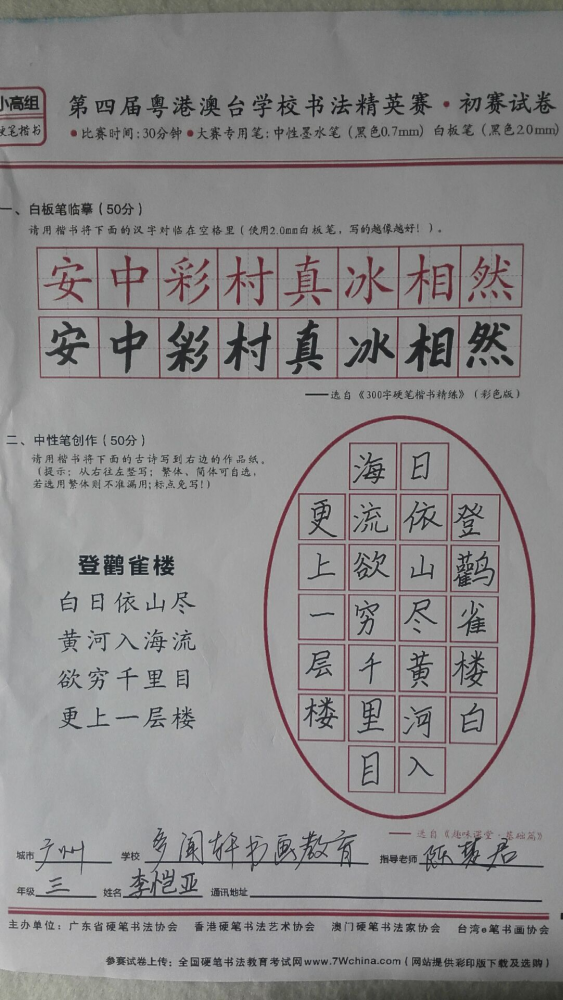 小高组
硬笔楷书
第四届粤港澳台学校书法精英赛·初赛试卷
●比赛时间:30分钟 ●大赛专用笔:中性墨水笔(黑色0.7mm) 白板笔(黑色2.0mm)
一、白板笔临摹(50分)
请用楷书将下面的汉字对临在空格里(使用2.0mm白板笔,写的越像越好!)。
安中彩村真冰相然
安中彩村真冰相然
——选自《300字硬笔楷书精练》(彩色版)
二、中性笔创作(50分)
请用楷书将下面的古诗写到右边的作品纸。
(提示:从右往左竖写;繁体、简体可自选,
若选用繁体则不准漏用;标点免写!)
登鹳雀楼
白日依山尽
黄河入海流
欲穷千里目
更上一层楼
登鹳雀楼白
日依山尽黄河入
海流欲穷千里目
更上一层楼
——选自《趣味课堂·基础篇》
城市 广州 学校 多闻轩书画教育 指导老师 陈慧君
年级 三 姓名 李恺亚 通讯地址
主办单位:广东省硬笔书法协会 香港硬笔书法艺术协会 澳门硬笔书法家协会 台湾e笔书画协会
参赛试卷上传:全国硬笔书法教育考试网www.7Wchina.com(网站提供彩印版下载及选购)